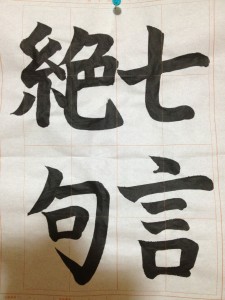 七言
絶句